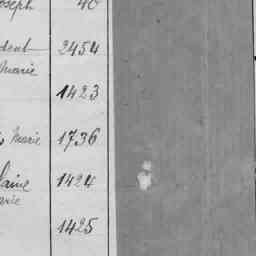 oseph 40
dent 2454
Marie
1423
Marie 1736
laine 1424
arie
1425